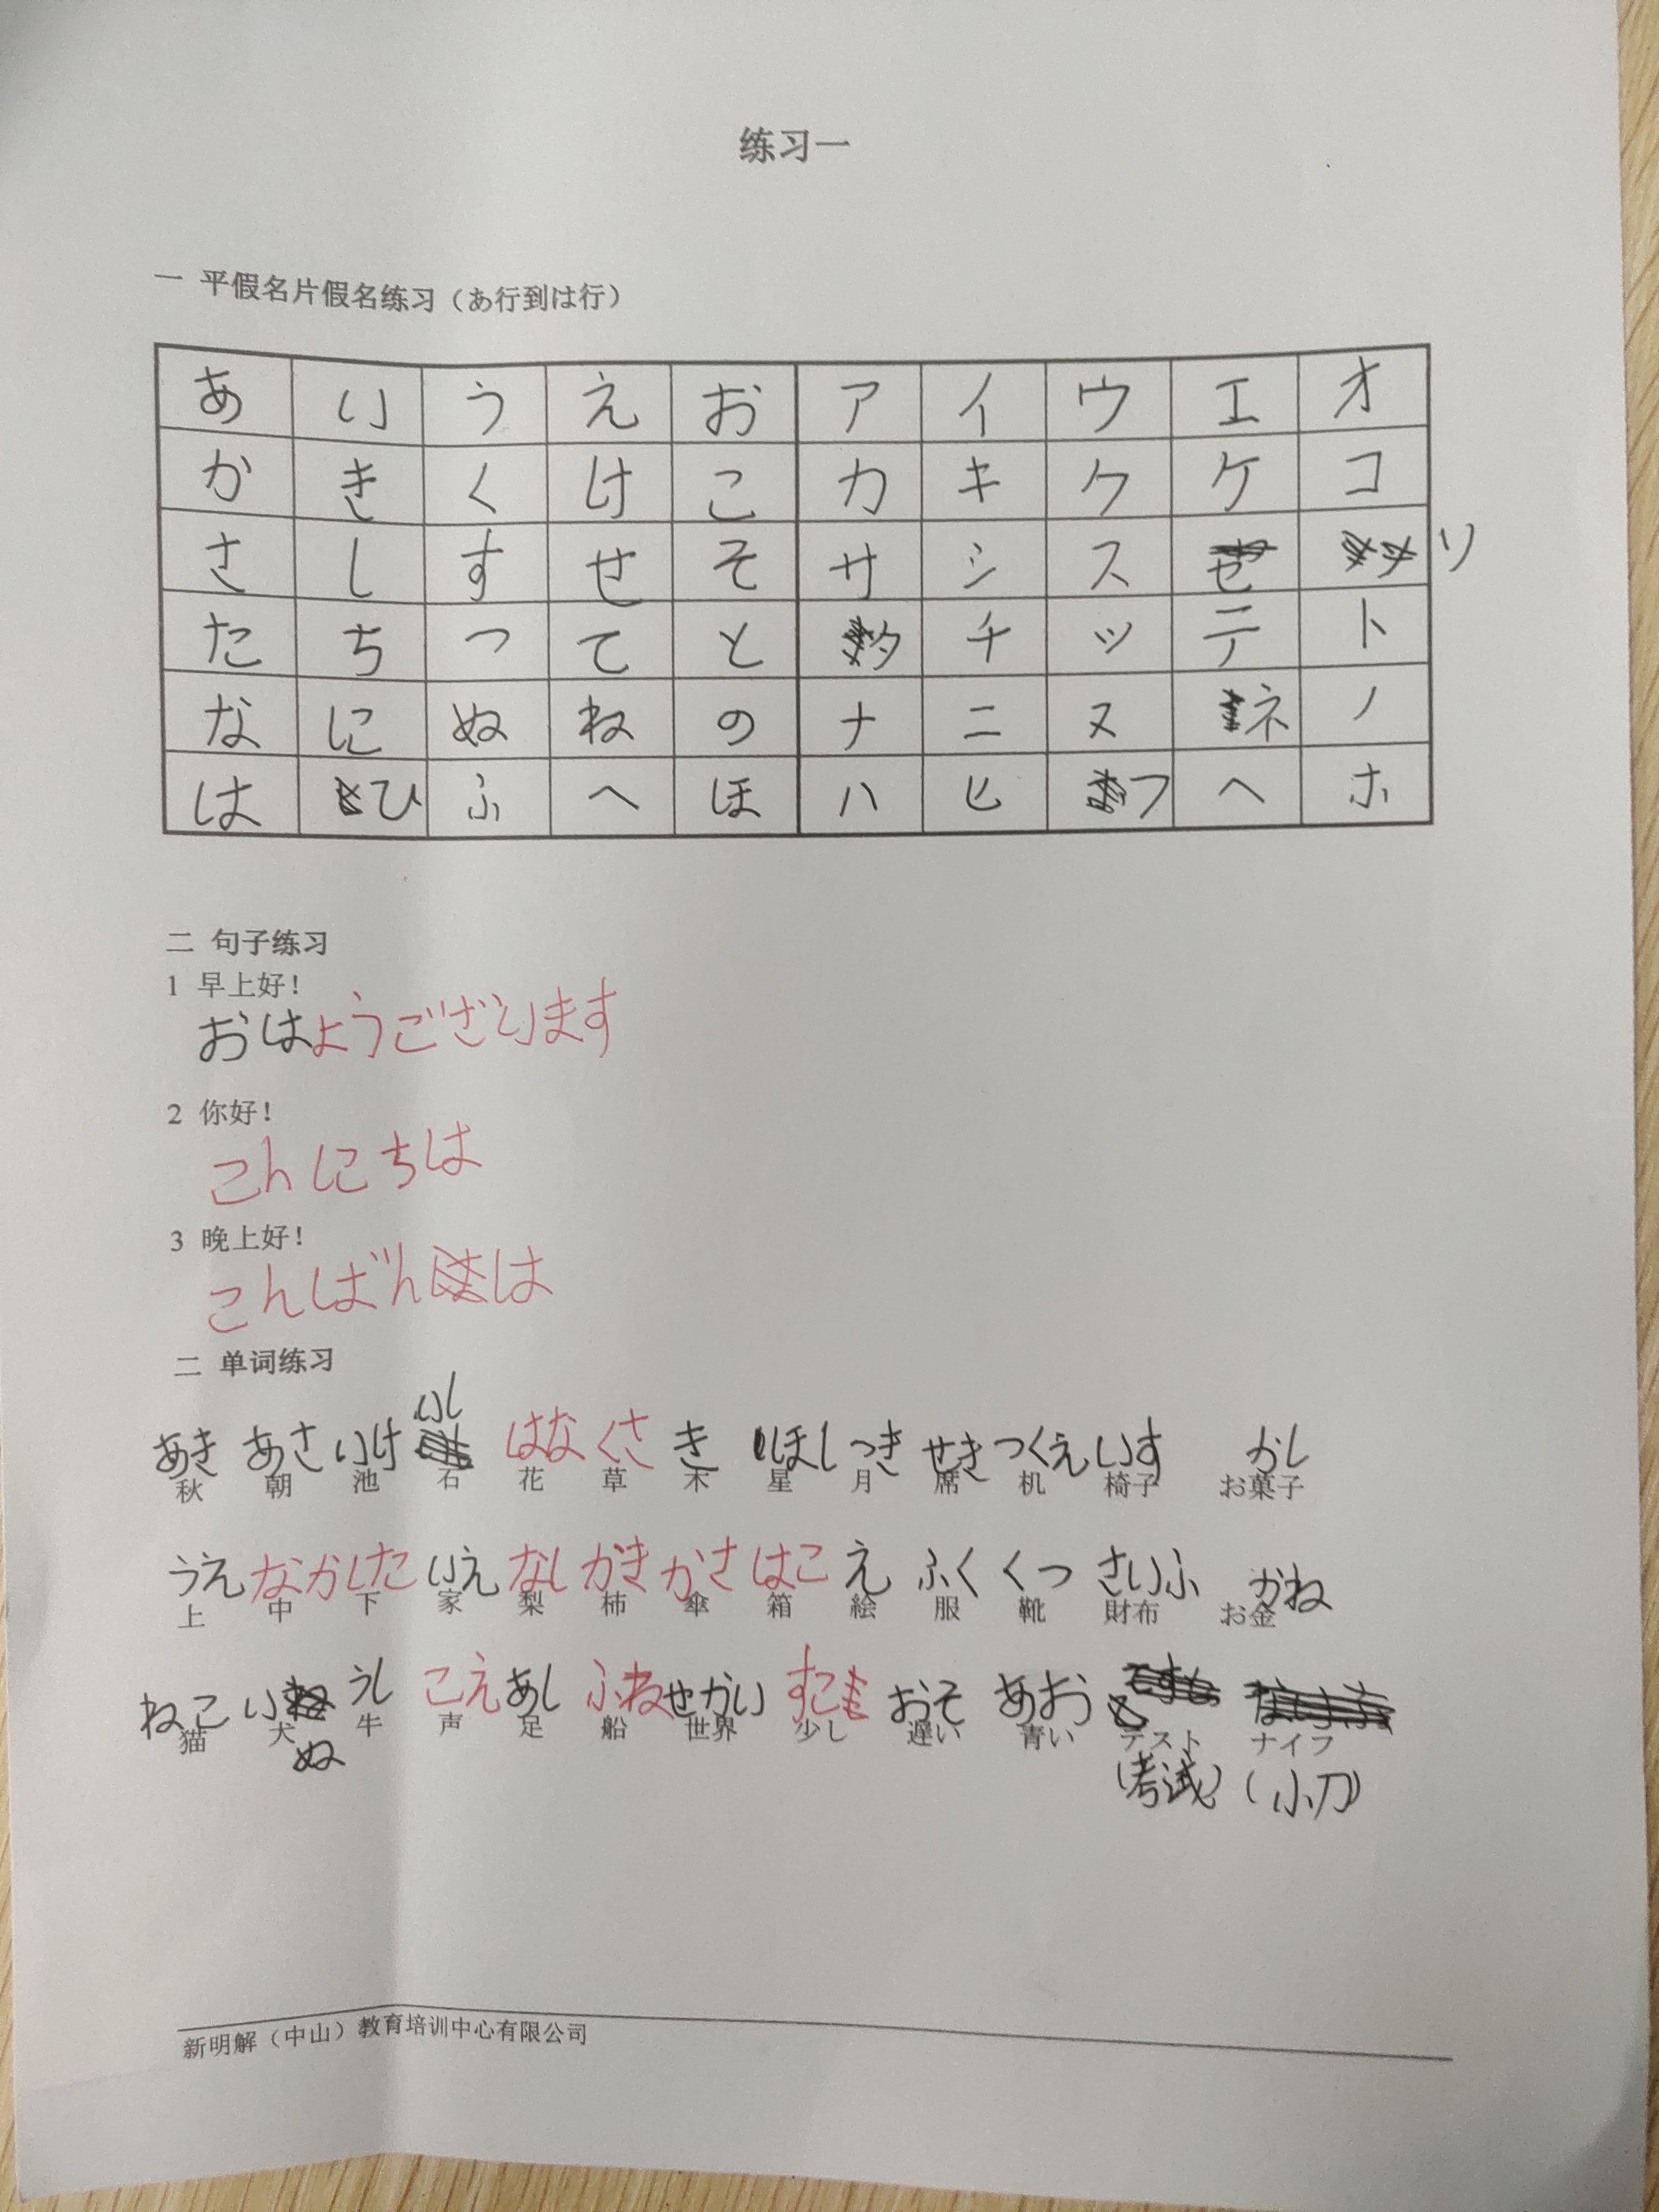 练习一
一 平假名片假名练习（あ行到は行）
あ い う え お ア イ ウ エ オ
か き く け こ カ キ ク ケ コ
さ し す せ そ サ シ ス セ ソ
た ち つ て と タ チ ツ テ ト
な に ぬ ね の ナ ニ ヌ ネ ノ
は ひ ふ へ ほ ハ ヒ フ ヘ ホ
二 句子练习
1 早上好！
おはようございます
2 你好！
こんにちは
3 晚上好！
こんばんは
二 单词练习
あき あさ いけ いし はな くさ き ほし つき せき つくえ いす かし
秋 朝 池 石 花 草 木 星 月 席 机 椅子 お菓子
うえ なか した いえ なし かき かさ はこ え ふく くつ さいふ かね
上 中 下 家 梨 柿 傘 箱 絵 服 靴 財布 お金
ねこ い うし こえ あし ふね せかい すこ おそ あお
猫 犬 牛 声 足 船 世界 少し 遅い 青い テスト ナイフ
ぬ （考试） （小刀）
新明解（中山）教育培训中心有限公司